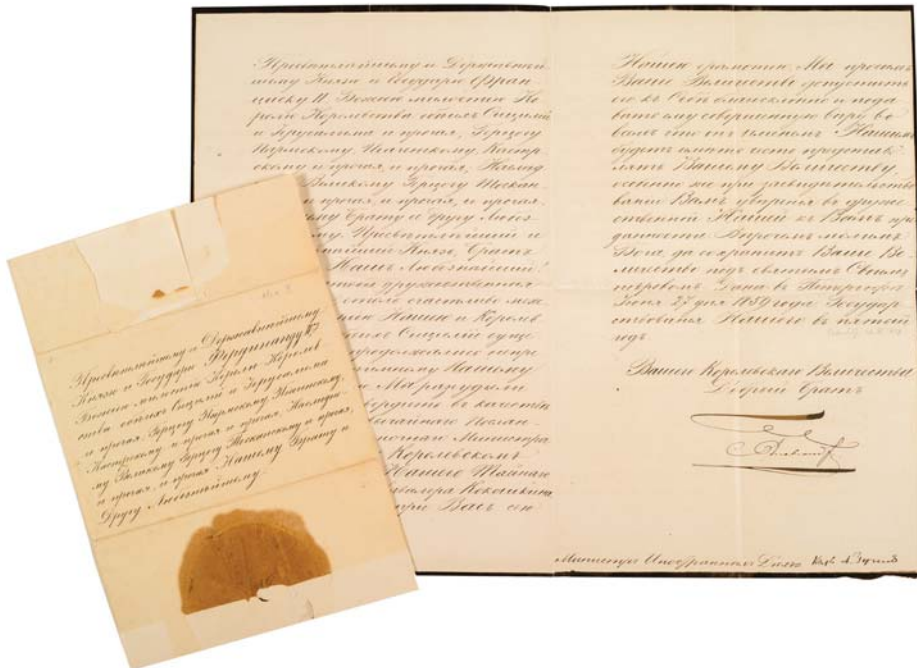 Пресвѣтлѣйшему и Державнѣй-
шему Князю и Государю Фран-
циску II. Божіею милостію Ко-
ролю Королевства обѣихъ Сицилій
и Іерусалима и прочая, Герцогу
Пармскому, Піаченскому, Кастр-
скому и прочая, и прочая, Наслѣд
Великому Герцогу Тоскан-
и прочая, и прочая, и прочая
Брату и другу Любез-
Пресвѣтлѣйшій и
Князь, Братъ
Нашъ Любезнѣйшій!
дружественныя
счастливо меж-
Нашею и Королев
Сицилій суще
продолжаемо непре
Нашему
Марандуліи
въ качествѣ
Послан-
Министра
Королевскомъ
Нашего Тайнаго
Кокошкина
при Васъ сею
Нашею грамотою, Мы просимъ
Ваше Величество допустить
его къ Себѣ благосклонно и пода-
вать ему совершенную вѣру во
всемъ что онъ именемъ Нашимъ
будетъ имѣть честь представ-
лять Вашему Величеству,
особенно же при засвидѣтельство-
ваніи Вамъ увѣреній въ друже-
ственной Нашей къ Вамъ пре-
данности. Впрочемъ молимъ
Бога, да сохранитъ Ваше Ве-
личество подъ святымъ Своимъ
покровомъ. Дана въ Петергофѣ
Іюня 27 дня 1859 года, Государ-
ствованія Нашего въ пятый
годъ.
Вашего Королевскаго Величества
Добрый Братъ
Министръ Иностранныхъ Дѣлъ
Пресвѣтлѣйшему и Державнѣйшему
Князю и Государю Фердинанду II
Божіею милостію Королю Королев
ства обѣихъ Сицилій и Іерусалима
и прочая, Герцогу Пармскому, Піаченскому,
Кастрскому и прочая и прочая, Наслѣдно-
му Великому Герцогу Тосканскому и прочая,
и прочая, и прочая Нашему Брату и
Другу Любезнѣйшему.